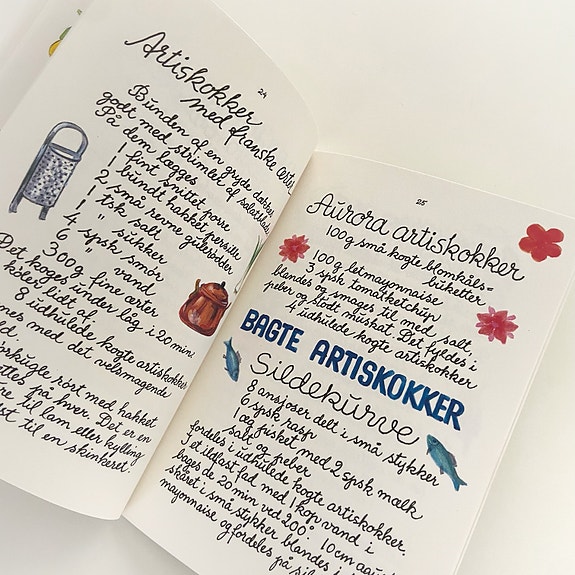 24
Artiskokker
med franske ærter
Bunden af en gryde dækkes
godt med strimlet af salatblade
På dem lægges
1 fint snittet porre
1 bundt hakket persille
2 små revne gulerødder
2 tsk salt
4 " sukker
6 spsk smør
6 " vand
300g fine ærter
Det koges under låg i 20 min.
køler lidt af
8 udhulede kogte artiskokker
nes med det velsmagende
rskugle rørt med hakket
ttes på hver. Det er en
re til lam eller kylling
st til en skinkeret.
25
Aurora artiskokker
100g små kogte blomkåls=
buketter
100g letmayonnaise
3 spsk tomatketchup
blendes og smages til med salt,
peber og stødt muskat. Det fyldes i
4 udhulede kogte artiskokker
BAGTE ARTISKOKKER
Sildekurve
8 ansjoser delt i små stykker
6 spsk rasp
1 æg pisket med 2 spsk mælk
salt og peber
fordeles i udhulede kogte artiskokker.
I et ildfast fad med 1 kop vand i
bages de 20 min ved 200°. 10 cm
skåret i små stykker blandes i
mayonnaise og fordeles på